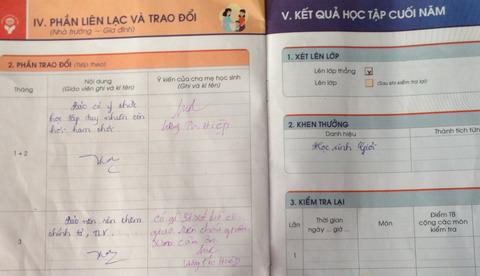 IV. PHẦN LIÊN LẠC VÀ TRAO ĐỔI
(Nhà trường – Gia đình)
2. PHẦN TRAO ĐỔI (Tiếp theo)
Tháng
Nội dung
(Giáo viên ghi và kí tên)
Ý kiến của cha mẹ học sinh
(Ghi và kí tên)
1 + 2
Bảo có ý thức
học tập tuy nhiên còn
hơi ham chơi
3
Bảo nên rèn thêm
chính tả, TLV
Có gì
cảm ơn
V. KẾT QUẢ HỌC TẬP CUỐI NĂM
1. XÉT LÊN LỚP
Lên lớp thẳng
Lên lớp
(Sau khi kiểm tra lại)
2. KHEN THƯỞNG
Danh hiệu
Thành tích từn
Học sinh Giỏi
3. KIỂM TRA LẠI
Lần
Thời gian
ngày ... giờ ...
Môn
Điểm TB
cộng các môn
kiểm tra
1